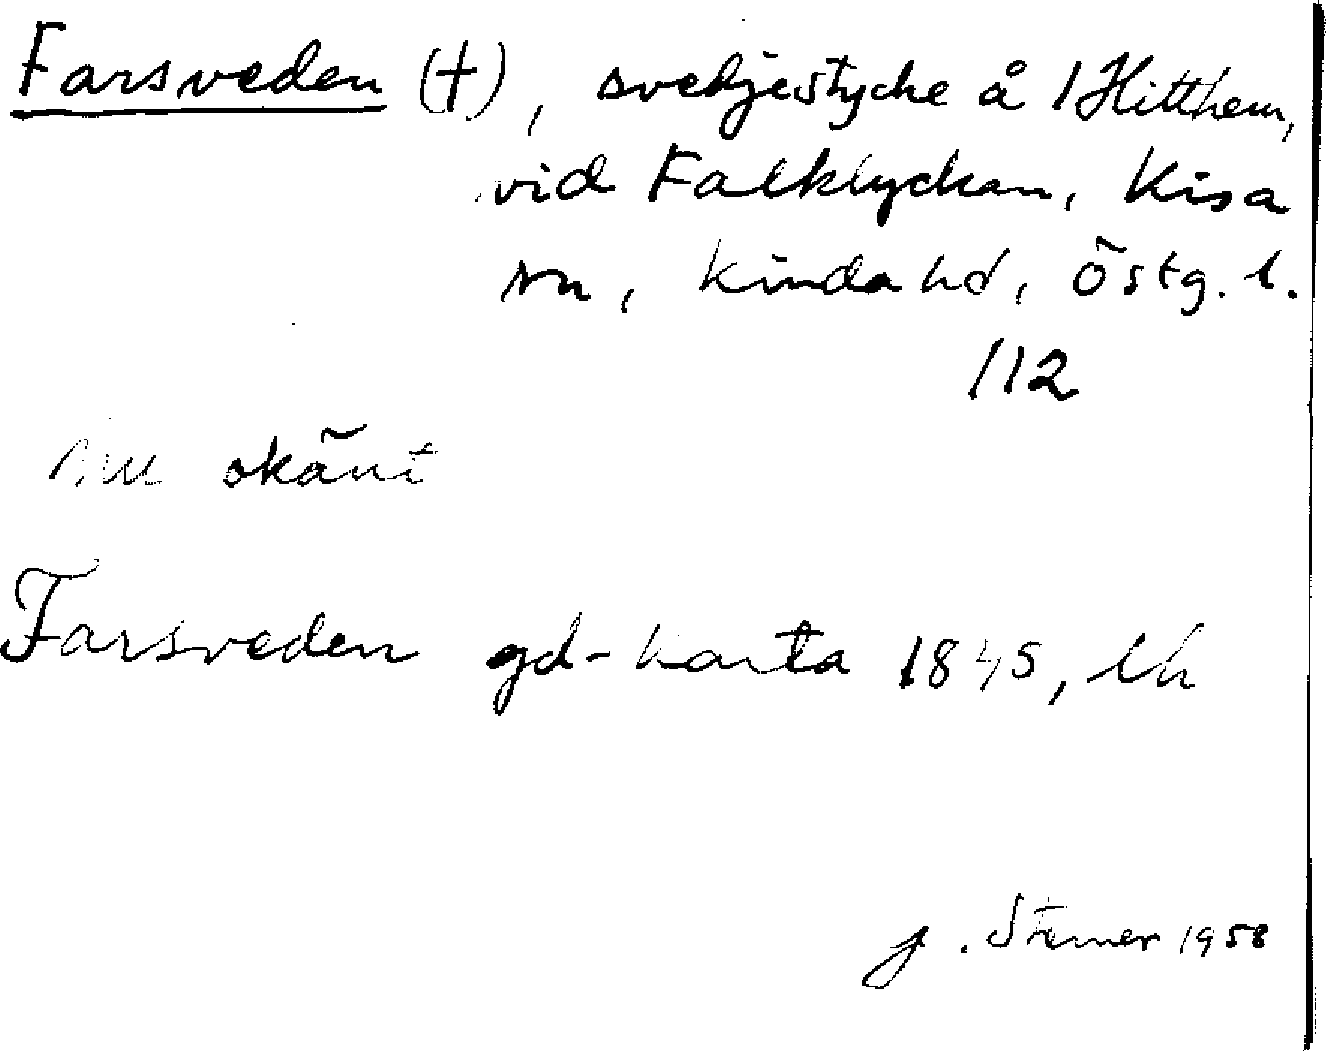 Farsveden (†), svedjestycke å 1 Hitthem,
vid Falklyckan, Kisa
sn, Kinda hd, Östg. l.
112
Nu okänt
Farsveden gd-karta 1845, lh
J. Sterner 1958